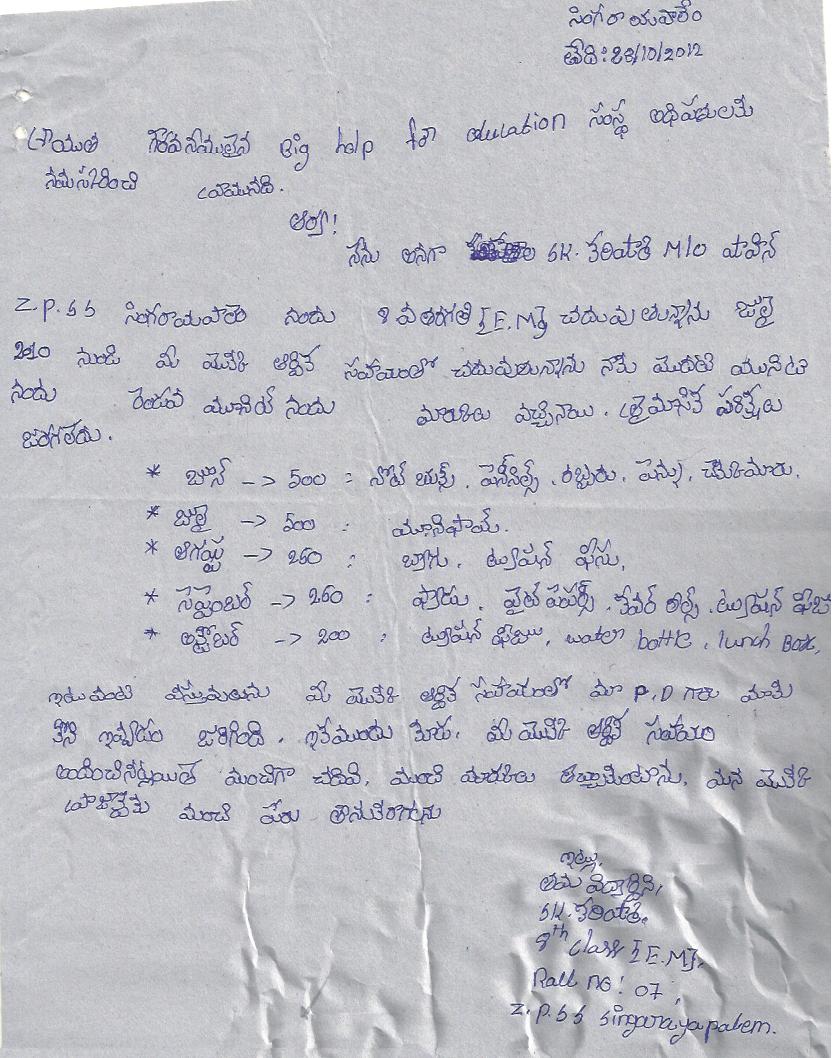 సింగరాయపాలెం
తేది: 28/10/2012
గౌరవనీయులైన Big help for education సంస్థ అధిపతులకు
నమస్కరించి వ్రాయునది.
ఆర్యా!
నేను అనగా SK. కరియాతి M/o షాహిన్
Z.P.SS సింగరాయపాలెం నందు 8 వ తరగతి [E.M] చదువుతున్నాను జులై
2010 నుండి మీ యొక్క ఆర్థిక సహాయంలో చదువుచున్నాను నాకు మొదటి యునిట్
నందు రెండవ యూనిట్ నందు మార్కులు వచ్చినాయి. త్రైమాసిక పరీక్షలు
జరగలేదు.
* జూన్ -> 500 : నోట్ బుక్స్, పెన్సిల్స్, రబ్బరు, పెన్ను, చెకుముకి
* జులై -> 500 : యూనిఫామ్.
* ఆగష్టు -> 250 : బ్యాగు, ట్యూషన్ ఫీసు,
* సెప్టెంబర్ -> 250 : ప్యాడు, వైట్ పేపర్స్, కవర్ రోల్స్, ట్యూషన్ ఫీజు
* అక్టోబర్ -> 200 : ట్యూషన్ ఫీజు, water bottle, lunch Box,
ఇటువంటి వస్తువులను మీ యొక్క ఆర్థిక సహాయంలో మా P.D గారు మాకు
ఇవ్వడం జరిగింది. ఇకముందు మీరు, మీ యొక్క ఆర్థిక సహాయం
అందించినట్లయితే మంచిగా చదివి, మంచి మార్కులు తెచ్చుకుంటాను, మన యొక్క
ప్రాజెక్టుకు మంచి పేరు తీసుకురాగలను
ఇట్లు,
తమ విద్యార్థిని,
SK. కరియాతి,
8th class [E.M],
Roll no: 07,
Z.P.SS Singarayapalem.